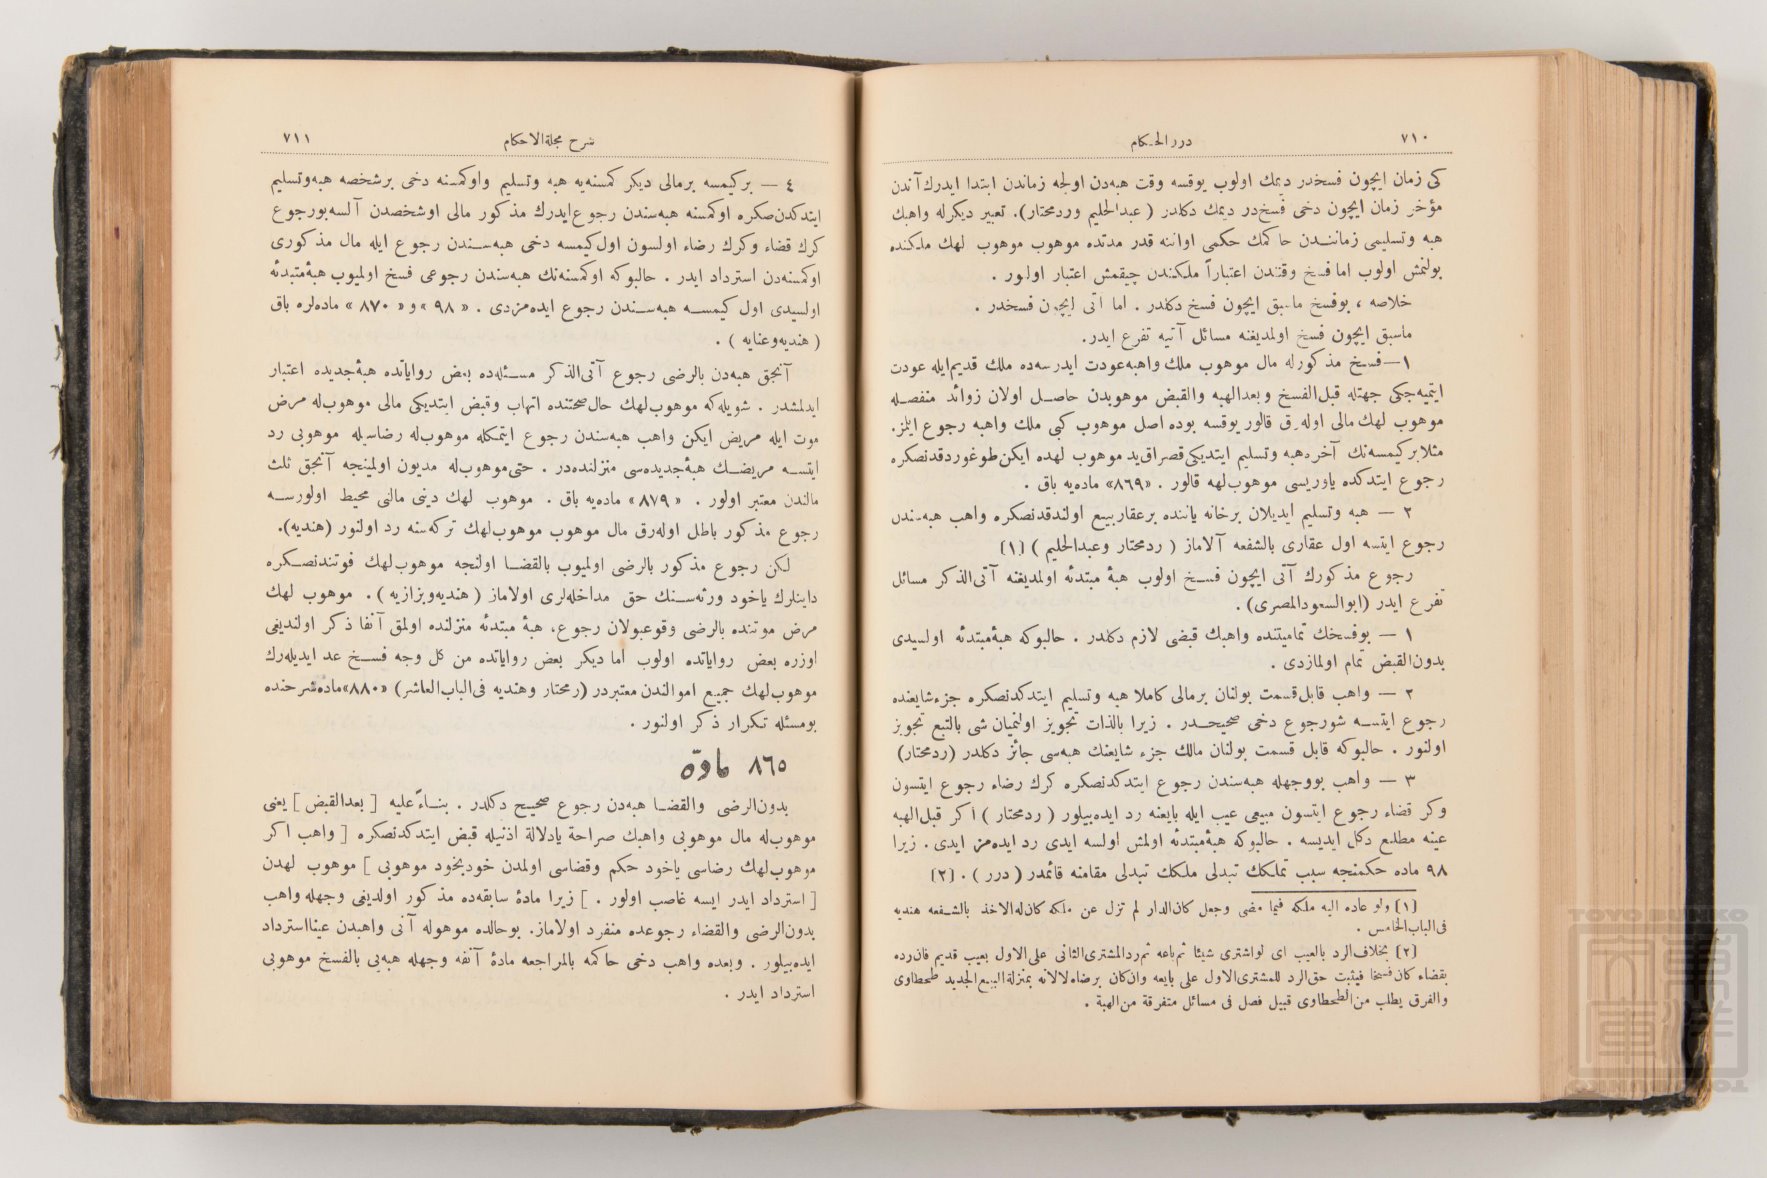 ٧١٠
دررالحكام
كی زمان ایچون فسخدر دیمك اولوب یوقسه وقت هبه‌دن اولجه زماندن ابتدا ایدرك آندن
مؤخر زمان ایچون دخی فسخ‌در دیمك دكلدر ( عبدالحلیم وردمختار). تعبیر دیكرله واهبك
هبه وتسلیمی زمانندن حاكمك حكمی اواننه قدر مدتده موهوب موهوب لهك ملكنده
بولنمش اولوب اما فسخ وقتندن اعتباراً ملكندن چیقمش اعتبار اولنور .
خلاصه ، بوفسخ ماسبق ایچون فسخ دكلدر . اما آتی ایچون فسخدر .
ماسبق ایچون فسخ اولمدیغنه مسائل آتیه تفرع ایدر.
١—فسخ مذكورله مال موهوب ملك واهبه‌عودت ایدرسه‌ده ملك قدیم‌ایله عودت
ایتمیه‌جكی جهتله قبل‌الفسخ وبعدالهبه والقبض موهوبدن حاصل اولان زوائد منفصله
موهوب لهك مالی اوله‌رق قالور یوقسه بوده اصل موهوب كبی ملك واهبه رجوع ایلمز.
مثلا بركیمسه‌نك آخره هبه وتسلیم ایتدیكی قصراق ید موهوب لهده ایكن طوغوردقدنصكره
رجوع ایتدكده یاوریسی موهوب‌لهه قالور . «٨٦٩» ماده‌یه باق .
٢ — هبه وتسلیم ایدیلان برخانه یاننده برعقاربیع اولندقدنصكره واهب هبه‌سندن
رجوع ایتسه اول عقاری بالشفعه آلاماز ( ردمختار وعبدالحلیم ) [١]
رجوع مذكورك آتی ایچون فسخ اولوب هبۀ مبتدئه اولمدیغنه آتی‌الذكر مسائل
تفرع ایدر (ابوالسعودالمصری) .
١ — بوفسخك تمامیتنده واهبك قبضی لازم دكلدر . حالبوكه هبۀمبتدئه اولسیدی
بدون‌القبض تمام اولمازدی .
٢ — واهب قابل‌قسمت بولنان برمالی كاملا هبه وتسلیم ایتدكدنصكره جزءشایعنده
رجوع ایتسه شورجوع دخی صحیحدر . زیرا بالذات تجویز اولنمیان شی بالتبع تجویز
اولنور . حالبوكه قابل قسمت بولنان مالك جزء شایعنك هبه‌سی جائز دكلدر (ردمختار)
٣ — واهب بووجهله هبه‌سندن رجوع ایتدكدنصكره كرك رضاء رجوع ایتسون
وكر قضاء رجوع ایتسون مبیعی عیب ایله بایعنه رد ایده‌بیلور ( ردمختار ) اكر قبل‌الهبه
عیبنه مطلع دكل ایدیسه . حالبوكه هبۀمبتدئه اولمش اولسه ایدی رد ایده‌مز ایدی . زیرا
٩٨ ماده حكمنجه سبب تملكك تبدلی ملكك تبدلی مقامنه قائمدر ( درر ) . [٢]
[١] ولو عاده الیه ملكه فیما مضی وجعل كان‌الدار لم تزل عن ملكه كان‌له‌الاخذ بالشفعه هندیه
فی‌الباب‌الخامس .
[٢] بخلاف‌الرد بالعیب ای لواشتری شیئا ثم‌باعه ثم‌ردالمشتری‌الثانی علی‌الاول بعیب قدیم فان‌رده
بقضاء كان‌فسخا فیثبت حق‌الرد للمشتری‌الاول علی بایعه وان‌كان برضاه‌لالانه بمنزلة‌البیع‌الجدید طحطاوی
والفرق یطلب من‌الطحطاوی قبیل فصل فی مسائل متفرقة من‌الهبة .
شرح مجلةالاحكام
٧١١
٤ — بركیمسه برمالی دیكر كمسنه‌یه هبه وتسلیم واوكمسنه دخی برشخصه هبه‌وتسلیم
ایتدكدن‌صكره اوكمسنه هبه‌سندن رجوع‌ایدرك مذكور مالی اوشخصدن آلسه‌بورجوع
كرك قضاء وكرك رضاء اولسون اول‌كیمسه دخی هبه‌سندن رجوع ایله مال مذكوری
اوكمسنه‌دن استرداد ایدر . حالبوكه اوكمسنه‌نك هبه‌سندن رجوعی فسخ اولمیوب هبۀمتبدئه
اولسیدی اول كیمسه هبه‌سندن رجوع ایده‌مزدی . « ٩٨ » و « ٨٧٠ » ماده‌لره باق
( هندیه‌وعنایه ) .
آنجق هبه‌دن بالرضی رجوع آتی‌الذكر مسئله‌ده بعض روایاتده هبۀجدیده اعتبار
ایدلمشدر . شویله‌كه موهوب‌لهك حال‌صحتنده اتهاب وقبض ایتدیكی مالی موهوب‌له مرض
موت ایله مریض ایكن واهب هبه‌سندن رجوع ایتمكله موهوب‌له رضاسیله موهوبی رد
ایتسه مریضك هبۀجدیده‌سی منزلنده‌در . حتی‌موهوب‌له مدیون اولمینجه آنجق ثلث
مالندن معتبر اولور . « ٨٧٩» ماده‌یه باق . موهوب لهك دینی مالنی محیط اولورسه
رجوع مذكور باطل اوله‌رق مال موهوب موهوب‌لهك تركه‌سنه رد اولنور (هندیه).
لكن رجوع مذكور بالرضی اولمیوب بالقضا اولنجه موهوب‌لهك فوتندنصكره
داینلرك یاخود ورثه‌سنك حق مداخله‌لری اولاماز ( هندیه‌وبزازیه ) . موهوب لهك
مرض موتنده بالرضی وقوعبولان رجوع، هبۀ مبتدئه منزلنده اولمق آنفا ذكر اولندیغی
اوزره بعض روایاتده اولوب اما دیكر بعض روایاتده من كل وجه فسخ عد ایدیله‌رك
موهوب‌لهك جمیع اموالندن معتبردر (رمختار وهندیه فی‌الباب‌العاشر) «٨٨٠»ماده‌شرحنده
بومسئله تكرار ذكر اولنور .
٨٦٥ مادّه
بدون‌الرضی والقضا هبه‌دن رجوع صحیح دكلدر . بناءً‌علیه [ بعدالقبض ] یعنی
موهوب‌له مال موهوبی واهبك صراحة یادلالة اذنیله قبض ایتدكدنصكره [ واهب اكر
موهوب‌لهك رضاسی یاخود حكم وقضاسی اولمدن خودبخود موهوبی ] موهوب لهدن
[ استرداد ایدر ایسه غاصب اولور . ] زیرا مادۀ سابقه‌ده مذكور اولدیغی وجهله واهب
بدون‌الرضی والقضاء رجوعده منفرد اولاماز. بوحالده موهوله آنی واهبدن عینااسترداد
ایده‌بیلور . وبعده واهب دخی حاكمه بالمراجعه مادۀ آنفه وجهله هبه‌یی بالفسخ موهوبی
استرداد ایدر .
TOYO BUNKO